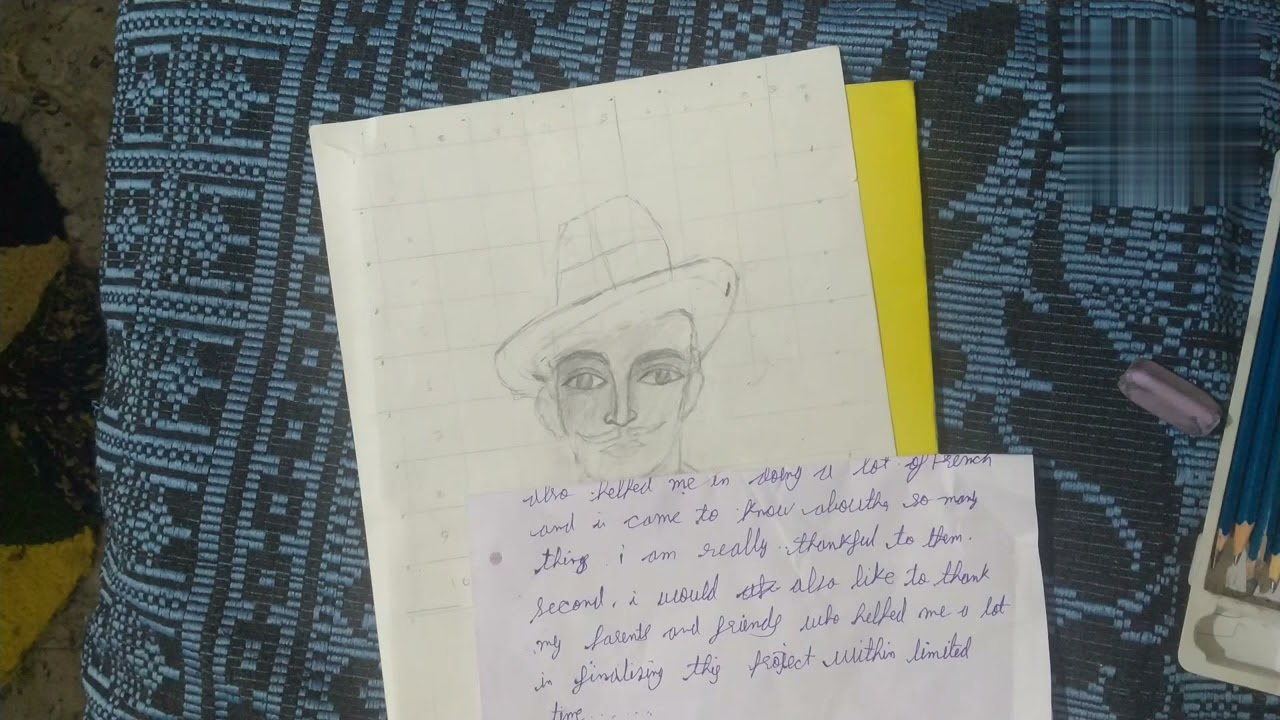 also helped me in doing a lot of French
and i came to know abouth so many
things i am really thankful to them.
second, i would also like to thank
my parents and friends who helped me a lot
in finalising this project within limited
time.......